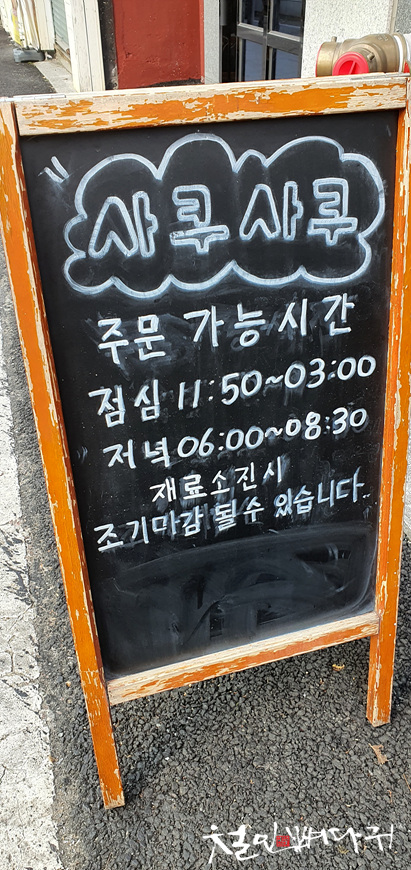 사쿠사쿠
주문 가능시간
점심 11:50~03:00
저녁 06:00~08:30
재료소진시
조기마감 될수 있습니다..